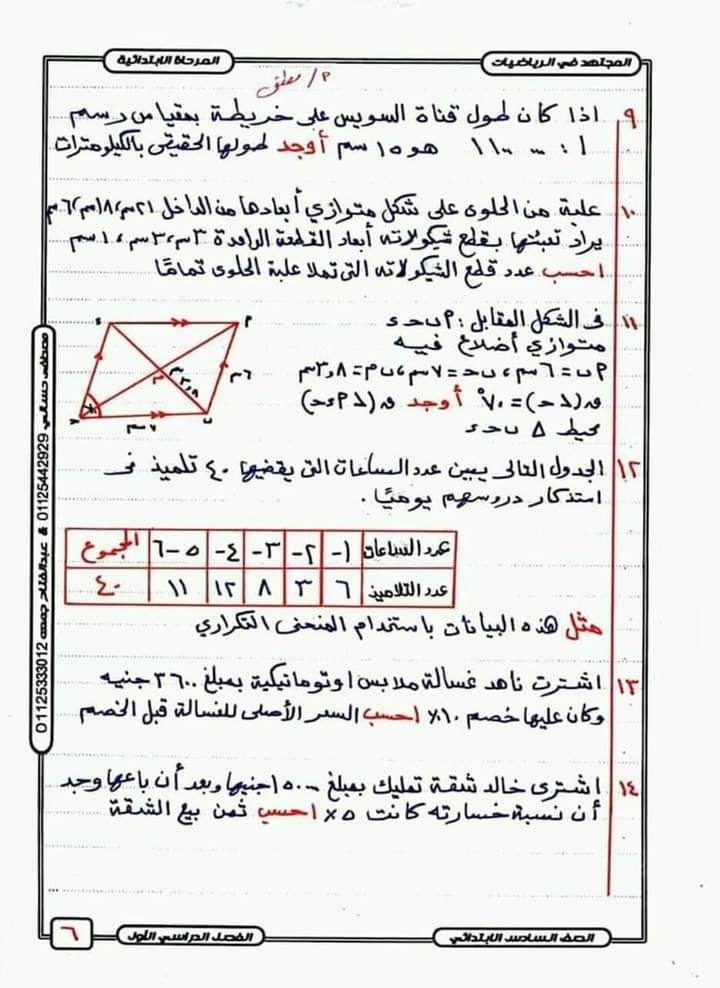 المجتهد في الرياضيات
المرحلة الابتدائية
٩ اذا كان طول قناة السويس على خريطة بمقياس رسم
١ : ١١٠٠٠٠٠ هو ١٥ سم أوجد طولها الحقيقى بالكيلومترات
١٠ علبة من الحلوى على شكل متوازي أبعادها من الداخل ٢١سم، ١٨سم، ٦سم
يراد تعبئتها بقطع شيكولاته أبعاد القطعة الواحدة ٣سم، ٣سم، ١سم
احسب عدد قطع الشيكولاته التى تملأ علبة الحلوى تمامًا
١١ فى الشكل المقابل : ٩ب حـ ء
متوازي أضلاع فيه
٩ب = ٦سم ، ب حـ = ٧سم ، ب م = ٣,٨سم
ق(ᐃ حـ) = ٧٠° أوجد ق(ᐃ ٩ء حـ)
محيط Δ ب حـ ء
ء
٩
م
٣,٨سم
٦سم
حـ
ب
٧سم
١٢ الجدول التالى يبين عدد الساعات التى يقضيها ٤٠ تلميذ فى
استذكار دروسهم يوميًا .
عدد الساعات ١- ٢- ٣- ٤- ٥-٦ المجموع
عدد التلاميذ ٦ ٣ ٨ ١٢ ١١ ٤٠
مثل هذه البيانات باستخدام المنحنى التكراري
١٣ اشترت ناهد غسالة ملابس اوتوماتيكية بمبلغ ٣٦٠٠ جنيه
وكان عليها خصم ١٠٪ احسب السعر الأصلى للغسالة قبل الخصم
١٤ اشترى خالد شقة تمليك بمبلغ ١٥٠٠٠٠ جنيها وبعد أن باعها وجد
أن نسبة خسارته كانت ٥٪ احسب ثمن بيع الشقة
مصطفى حسانى 01125442929 & عبدالفتاح جمعه 01125333012
الصف السادس الابتدائي
الفصل الدراسي الأول
٦